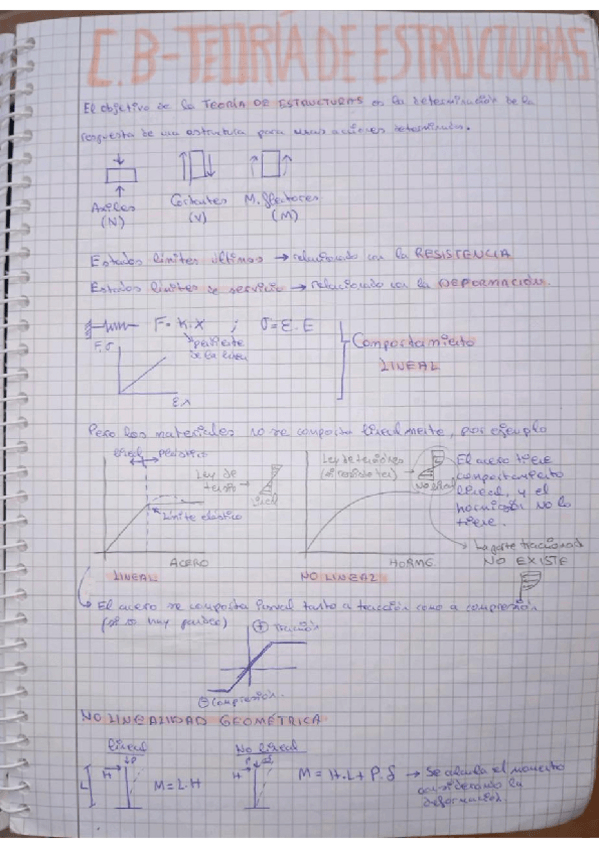 C.B-TEORÍA DE ESTRUCTURAS
El objetivo de la TEORÍA DE ESTRUCTURAS es la determinación de la
respuesta de una estructura para unas acciones determinadas.
Axiles Cortantes M. flectores
(N) (V) (M)
Estados límites últimos → relacionado con la RESISTENCIA
Estados límites de servicio → relacionado con la DEFORMACIÓN.
F = K·X ; σ = Ɛ.E
pendiente
de la recta
F,σ
Ɛ,x
Comportamiento
LINEAL
Pero los materiales no se comporta linealmente, por ejemplo
lineal plástico
Ley de
tensión →
lineal
Límite elástico
ACERO
LINEAL
Ley de tensiones
No lineal
HORMG.
NO LINEAL
El acero tiene
comportamiento
lineal, y el
hormigón no lo
tiene.
La parte traccionada
NO EXISTE
El acero se comporta lineal tanto a tracción como a compresión
(si no hay pandeo)
+ Tracción
- Compresión.
NO LINEALIDAD GEOMÉTRICA
lineal No lineal
H P L M = L·H
H P M = H·L + P·δ → Se calcula el momento
considerando la
deformación.